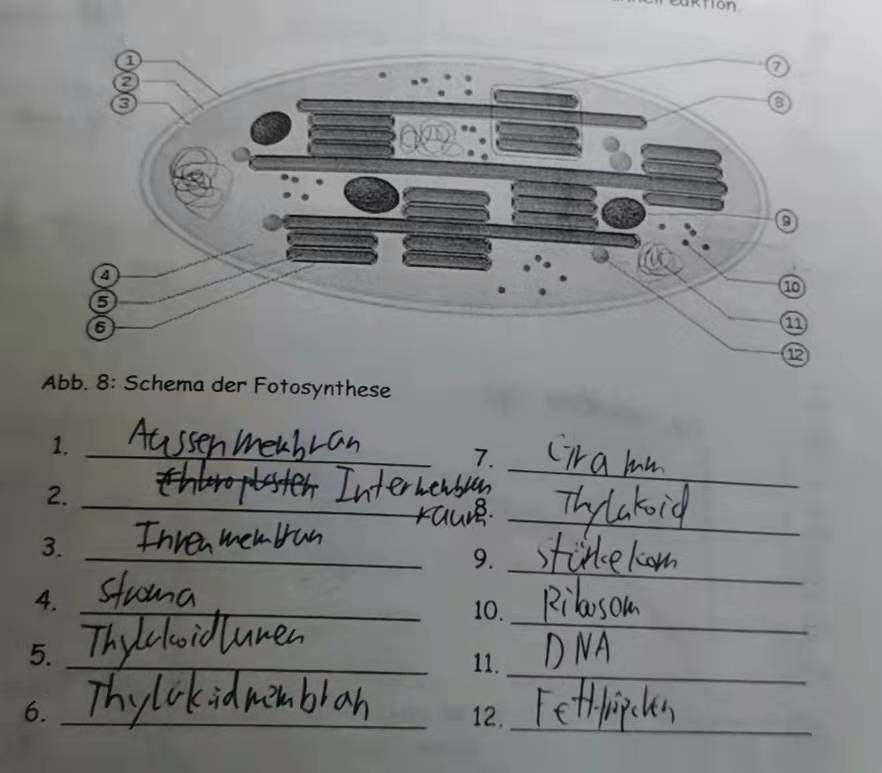 reaktion.
1
2
3
7
8
9
4
5
6
10
11
12
Abb. 8: Schema der Fotosynthese
1. Aussenmembran
2. Chloroplasten Intermembran
raum
3. Innenmembran
4. Stroma
5. Thylakoidlumen
6. Thylakoidmembran
7. Gramm
8. Thylakoid
9. Stärkekorn
10. Ribosom
11. DNA
12. Fetttröpchen